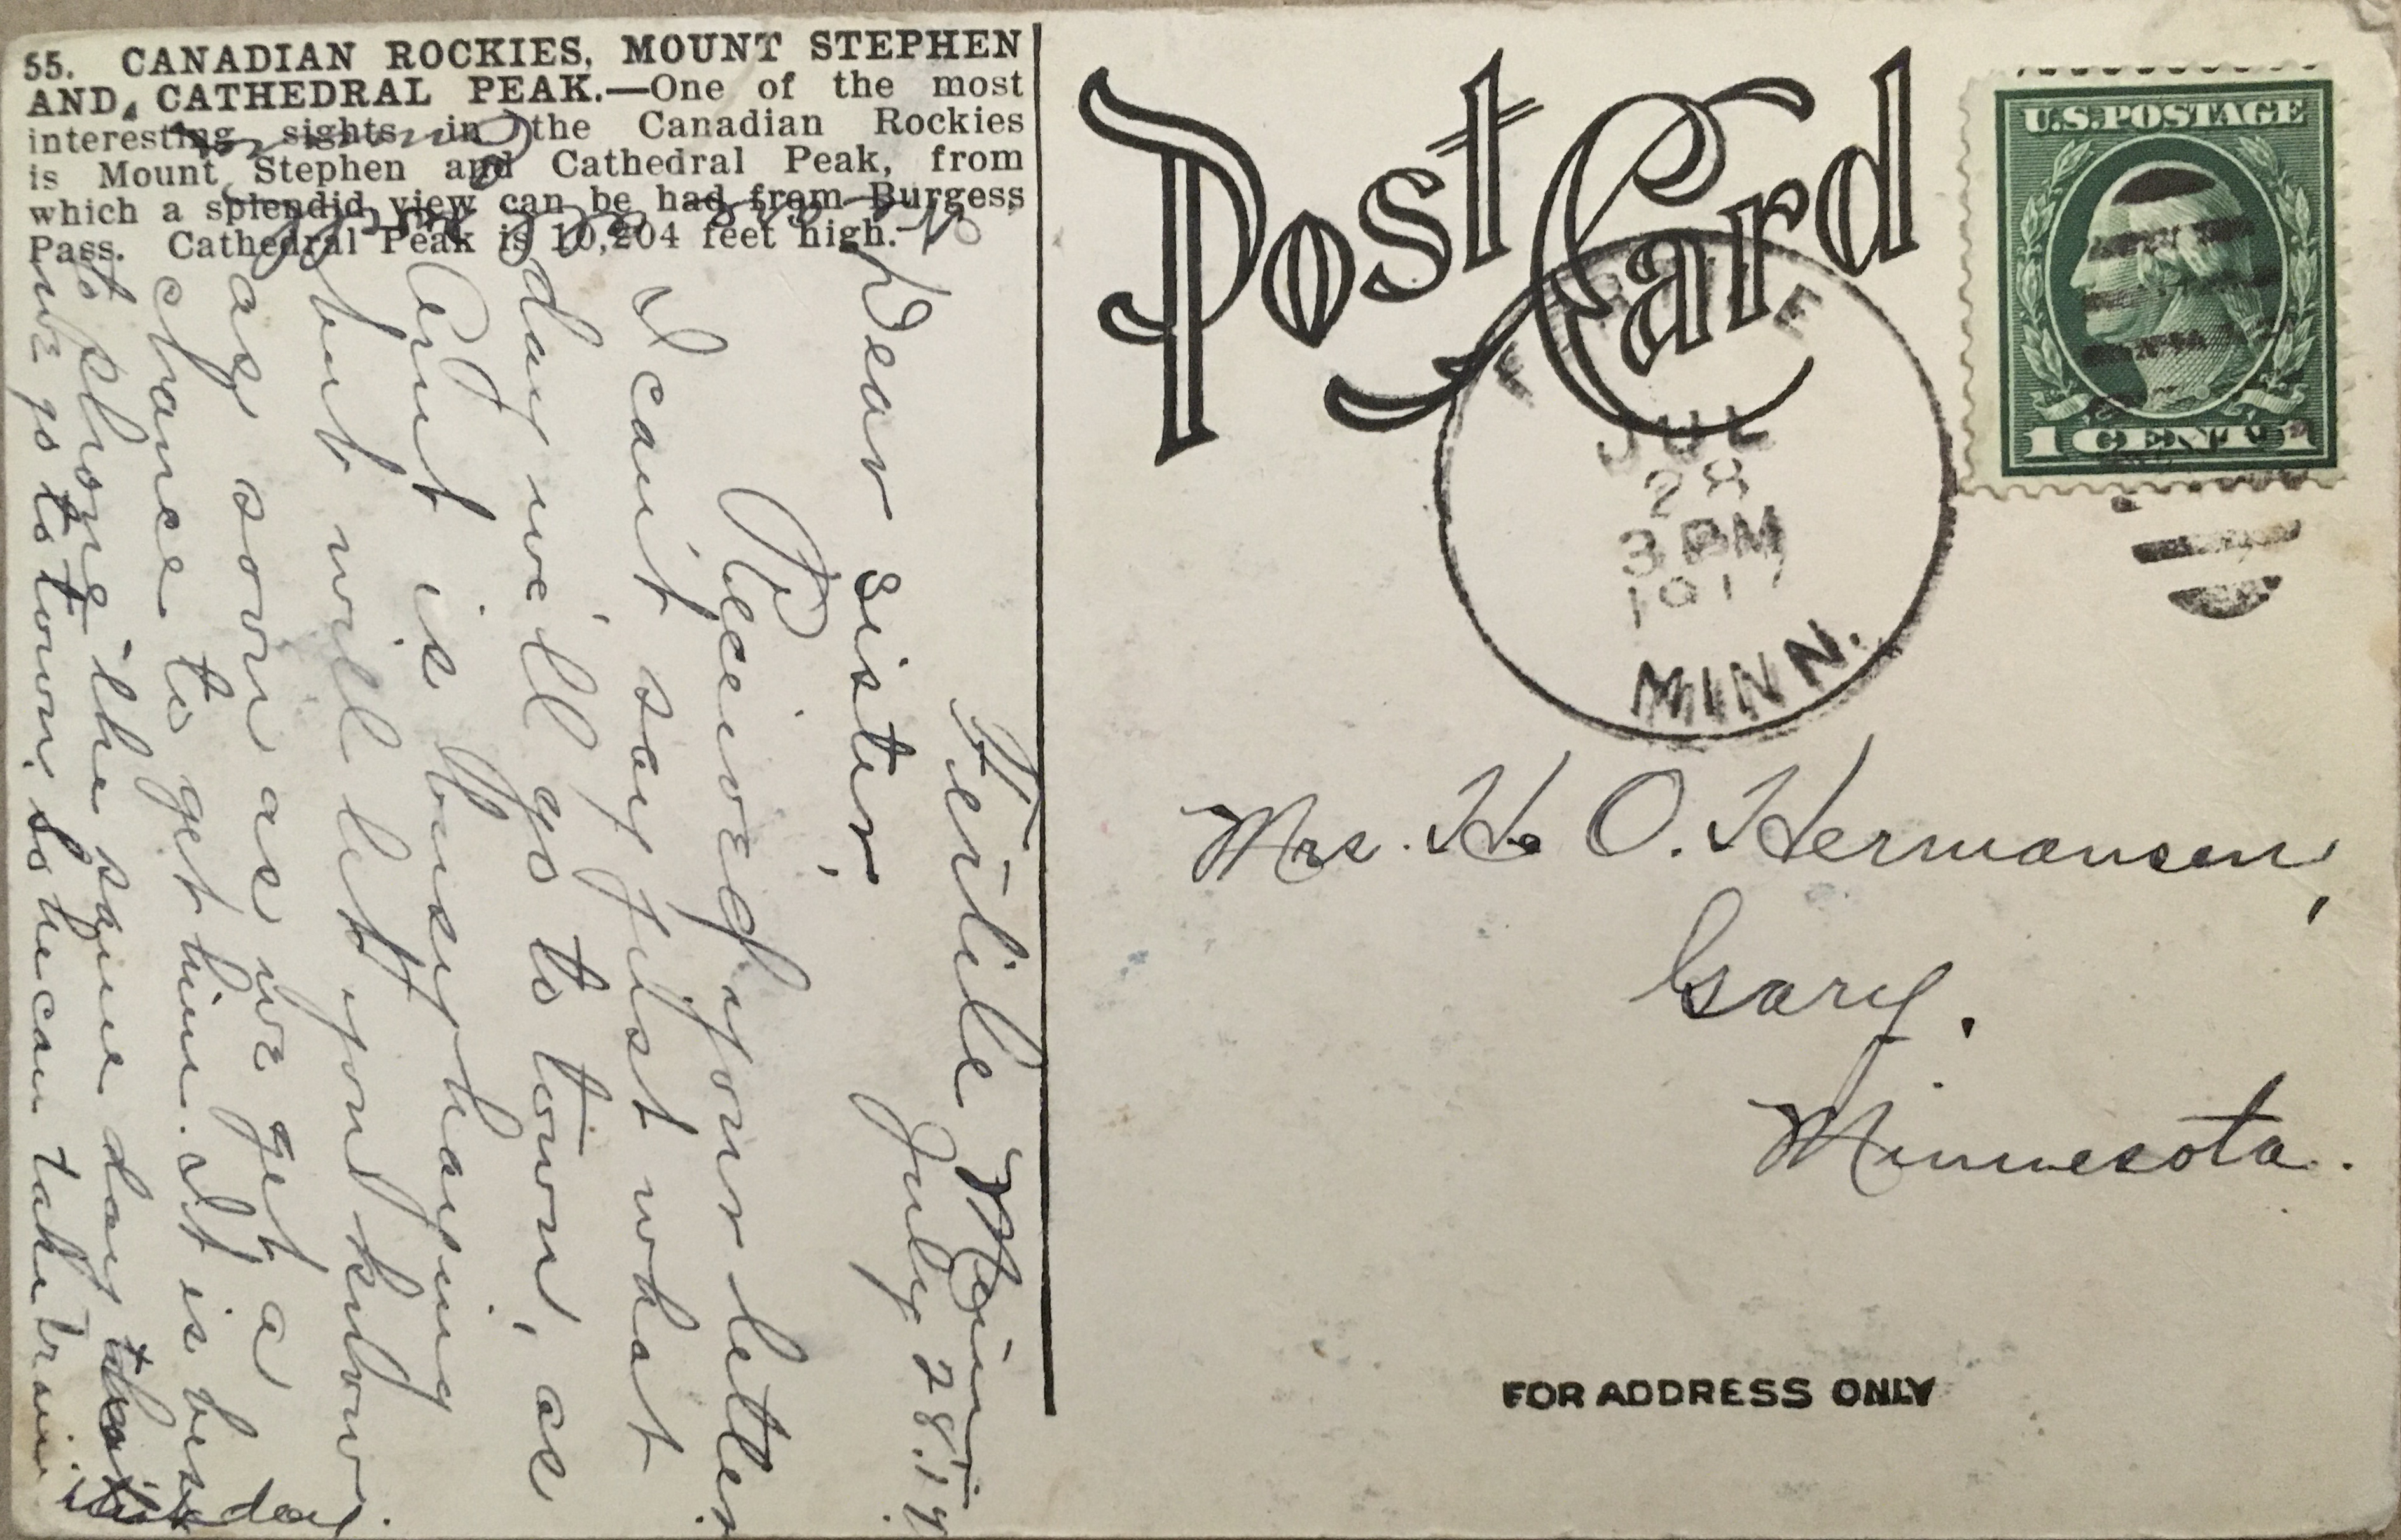 55. CANADIAN ROCKIES, MOUNT STEPHEN
AND CATHEDRAL PEAK.—One of the most
interesting sights in the Canadian Rockies
is Mount Stephen and Cathedral Peak, from
which a splendid view can be had from Burgess
Pass. Cathedral Peak is 10,204 feet high.
Fertile Minn
July 28. 17
Dear sister,
Received your letter.
I can't say just what
day we'll go to town, as
Arnt is busy haying
but will let you know
as soon as we get a
chance to get him. It is best
to phone the same day
we go to town, so he can take train
day.
Post Card
U.S. POSTAGE
1 CENT 1
JUL
28
3 PM
1917
MINN.
Mrs. H. O. Hermansen,
Gary.
Minnesota.
FOR ADDRESS ONLY